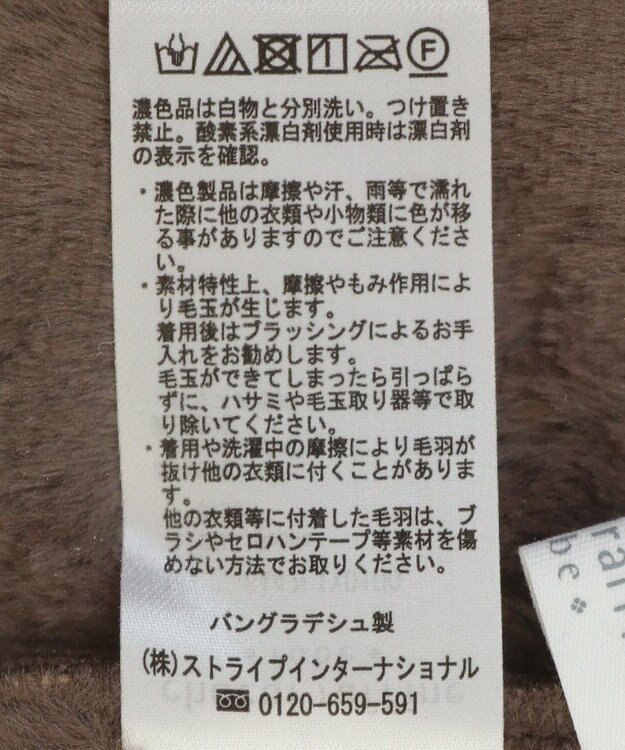 F
濃色品は白物と分別洗い。つけ置き
禁止。酸素系漂白剤使用時は漂白剤
の表示を確認。
・濃色製品は摩擦や汗、雨等で濡れ
た際に他の衣類や小物類に色が移
る事がありますのでご注意くださ
い。
・素材特性上、摩擦やもみ作用によ
り毛玉が生じます。
着用後はブラッシングによるお手
入れをお勧めします。
毛玉ができてしまったら引っぱら
ずに、ハサミや毛玉取り器等で取
り除いてください。
・着用や洗濯中の摩擦により毛羽が
抜け他の衣類に付くことがありま
す。
他の衣類等に付着した毛羽は、ブ
ラシやセロハンテープ等素材を傷
めない方法でお取りください。
バングラデシュ製
(株)ストライプインターナショナル
0120-659-591
be